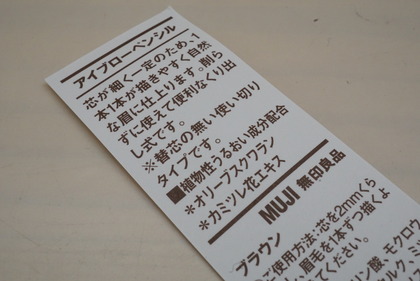 アイブローペンシル
芯が細く一定のため、1
本1本が描きやすく自然
な眉に仕上ります。削ら
ずに使えて便利なくり出
し式です。
※替芯の無い使い切り
タイプです。
■植物性うるおい成分配合
*オリーブスクワラン
*カミツレ花エキス
MUJI 無印良品
ブラウン
ご使用方法:芯を2mmくら
し、眉毛を1本ずつ描くよ
てください。
リン酸、モクロウ